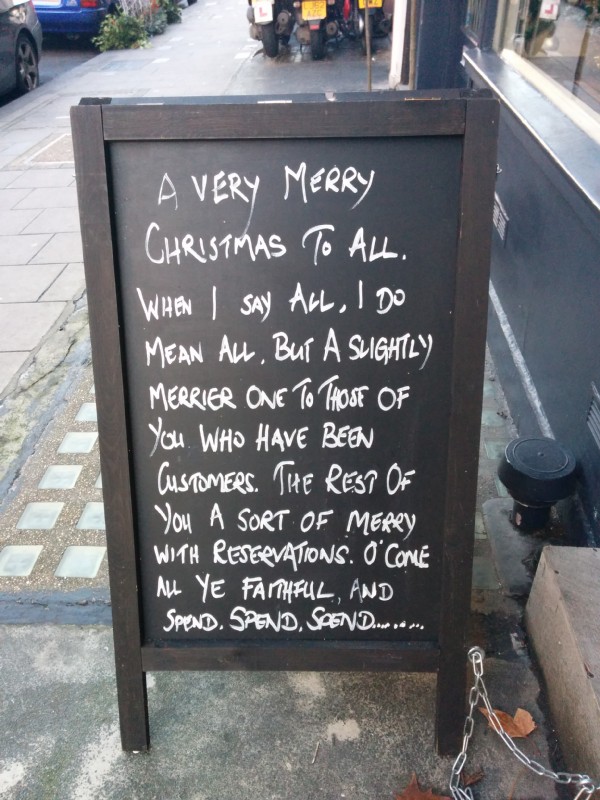 A VERY MERRY
CHRISTMAS TO ALL.
WHEN I SAY ALL, I DO
MEAN ALL, BUT A SLIGHTLY
MERRIER ONE TO THOSE OF
YOU WHO HAVE BEEN
CUSTOMERS. THE REST OF
YOU A SORT OF MERRY
WITH RESERVATIONS. O'COME
ALL YE FAITHFUL, AND
SPEND, SPEND, SPEND.......